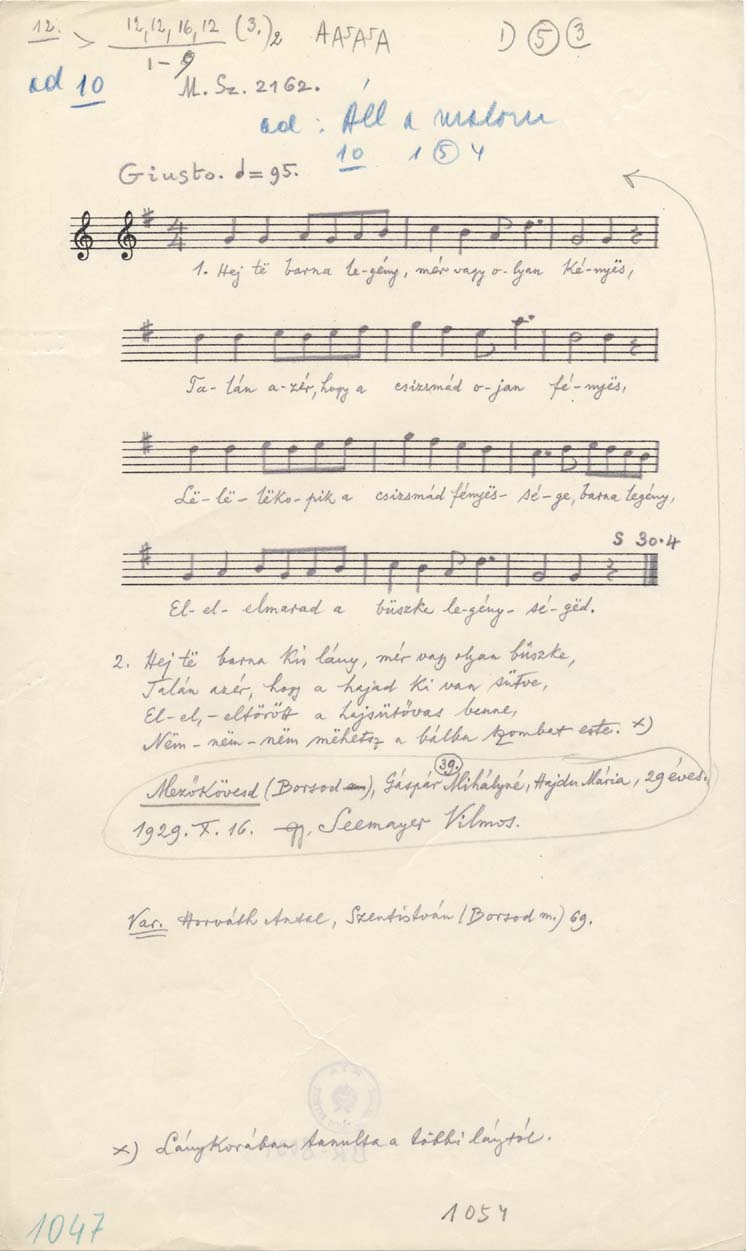 12. > 12, 12, 16, 12 (3.)2 AA⁵A⁵A 1) ⑤ ③
1-9
ad 10 M. Sz. 2162.
ad: Áll a malom
10 1 ⑤ 4
Giusto. d = 95.
1. Hej të barna le-gény, mér vagy o-lyan Ké-nyës,
Ta-lán a-zér, hogy a csizsmád o-jan fé-nyës,
Lë-lë-lëko-pik a csizsmád fényës-sé-ge, barna legény,
S 30.4
El-el-elmarad a büszke le-gény-sé-gëd.
2. Hej të barna kis lány, mér vagy olyan büszke,
Talán azér, hogy a hajad ki van sütve,
El-el,-eltörött a hajsütővas benne,
Nëm-nëm-nëm mëhetsz a bálba szombat este. x)
39.
Mezőkövesd (Borsod), Gáspár Mihályné, Hajdu Mária, 29 éves.
1929. X. 16. Seemayer Vilmos.
Var. Horváth Antal, Szentistván (Borsod m.) 69.
x) Lánykorában tanulta a többi lánytól.
1047 1054